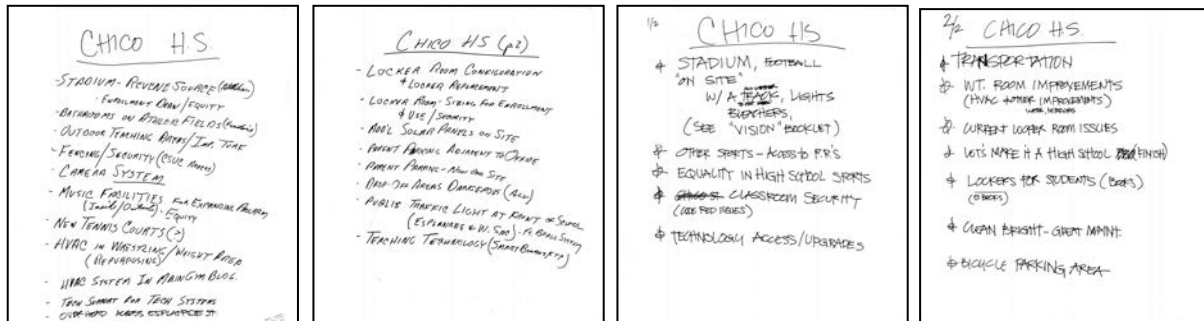 CHICO H.S.
- STADIUM - REVENUE SOURCE
- ENROLLMENT DRAW / EQUITY
- BATHROOMS ON ATHLETIC FIELDS
- OUTDOOR TEACHING AREAS / IMP. TURF
- FENCING / SECURITY (CSUC ACCESS)
- CAMERA SYSTEM
- MUSIC FACILITIES FOR EXPANDING PROGRAM
- EQUITY
- NEW TENNIS COURTS (?)
- HVAC IN WRESTLING / WEIGHT AREA
(REPURPOSING)
- HVAC SYSTEM IN MAIN GYM BLDG.
- TECH SUPPORT FOR TECH SYSTEMS
CHICO HS (p2)
- LOCKER ROOM CONFIGURATION
& LOCKER REPLACEMENT
- LOCKER ROOM - SIZING FOR ENROLLMENT
& USE / SECURITY
- ADD'L SOLAR PANELS ON SITE
- PARENT PARKING ADJACENT TO OFFICE
- PARENT PARKING - NON ON SITE
- DROP-OFF AREAS DANGEROUS (ALL)
- PUBLIC TRAFFIC LIGHT AT FRONT OF SCHOOL
(ESPLANADE & W. SAC)
- TEACHING TECHNOLOGY (SMART BOARDS, ETC)
1/2 CHICO HS
STADIUM, FOOTBALL
"ON SITE"
W/ A TRACK, LIGHTS
BLEACHERS,
(SEE "VISION" BOOKLET)
OTHER SPORTS - ACCESS TO R.R'S
EQUALITY IN HIGH SCHOOL SPORTS
CLASSROOM SECURITY
TECHNOLOGY ACCESS/UPGRADES
2/2 CHICO H.S.
TRANSPORTATION
WT. ROOM IMPROVEMENTS
(HVAC + OTHER IMPROVEMENTS)
CURRENT LOCKER ROOM ISSUES
LET'S MAKE IT A HIGH SCHOOL (FINISH)
LOCKERS FOR STUDENTS (BOOKS)
(E BOOKS)
CLEAN BRIGHT - GREAT MAINT.
BICYCLE PARKING AREA